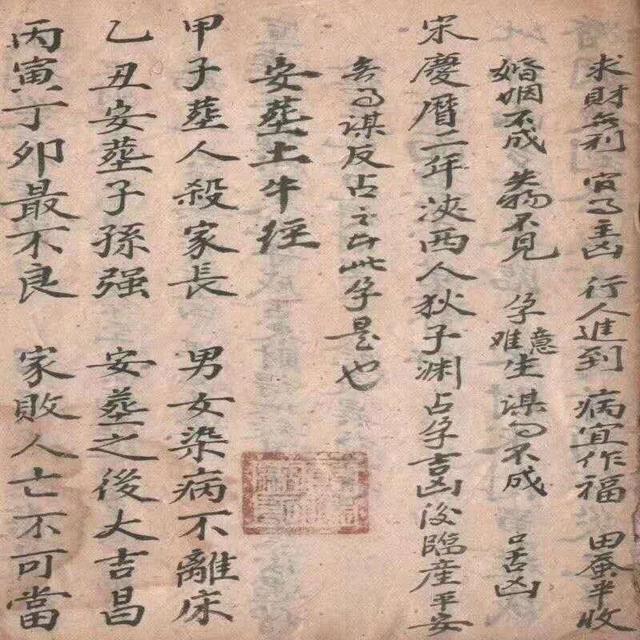 求財無利 官事主凶 行人進到 病宜作福 田蚕半收
婚姻不成 失物不見 孕难生 谋事不成 口舌凶
宋慶曆二年陕西人狄子渊占孕吉凶後臨産平安
無事謀反占之凶此孕是也
安葬土牛经
甲子葬人殺家長 男女染病不離床
乙丑安葬子孫强 安葬之後大吉昌
丙寅丁卯最不良 家敗人亡不可當